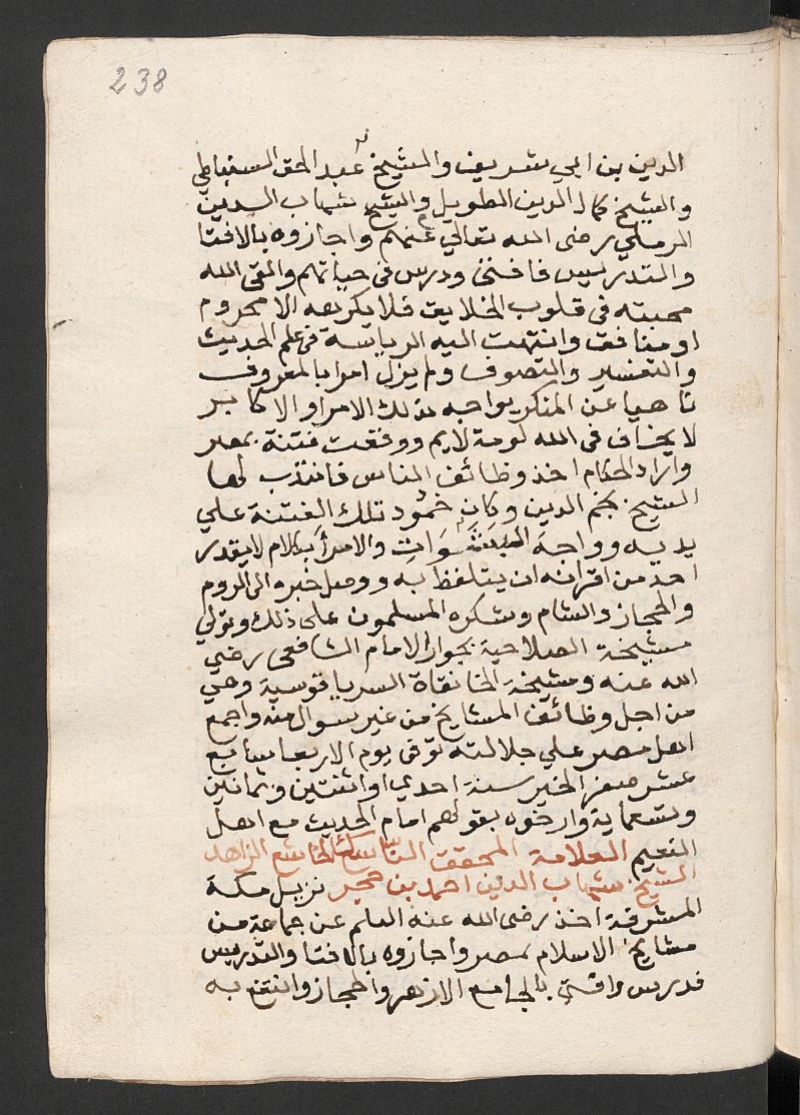 238
الدين بن ابي شريف والشيخ عبد الحق السنباطي
والشيخ كمال الدين الطويل والشيخ شهاب الدين
الرملي رضى الله تعالي عنهم واجازوه بالافتا
والتدريس فافتى ودرس فى حياتهم والقى الله
محبته فى قلوب الخلايق فلا يكرهه الا محروم
او منافق وانتهت اليه الرياسة فى علم الحديث
والتفسير والتصوف ولم يزل امرا بالمعروف
ناهيا عن المنكر يواجه بذلك الامرا والاكابر
لا يخاف فى الله لومة لايم ووقعت فتنة بمصر
واراد الحكام اخذ وظائف الناس فانتدب لها
الشيخ نجم الدين وكان خمود تلك الفتنة علي
يديه وواجه والامرا بكلام لا يقدر
احد من اقرانه ان يتلفظ به ووصل خبره الى الروم
والحجاز والشام وشكره المسلمون على ذلك وتولي
مشيخة الصلاحية بجوار الامام الشافعى رضي
الله عنه ومشيخة الخانقاة السرياقوسية وهي
من اجل وظائف المشايخ من غير سوال منه واجمع
اهل مصر علي جلالته توفى يوم الاربعا سابع
عشر صفر الخير سنة احدي او اثنتين وثمانين
وتسعماية وارخوه بقولهم امام الحديث مع اهل
النعيم العلامة المحقق الناسك الخاشع الزاهد
الشيخ شهاب الدين احمد بن حجر نزيل مكة
المشرفة اخذ رضى الله عنه العلم عن جماعة من
مشايخ الاسلام بمصر واجازوه بالافتا والتدريس
فدرس وافتى بالجامع الازهر والحجاز وانتفع به